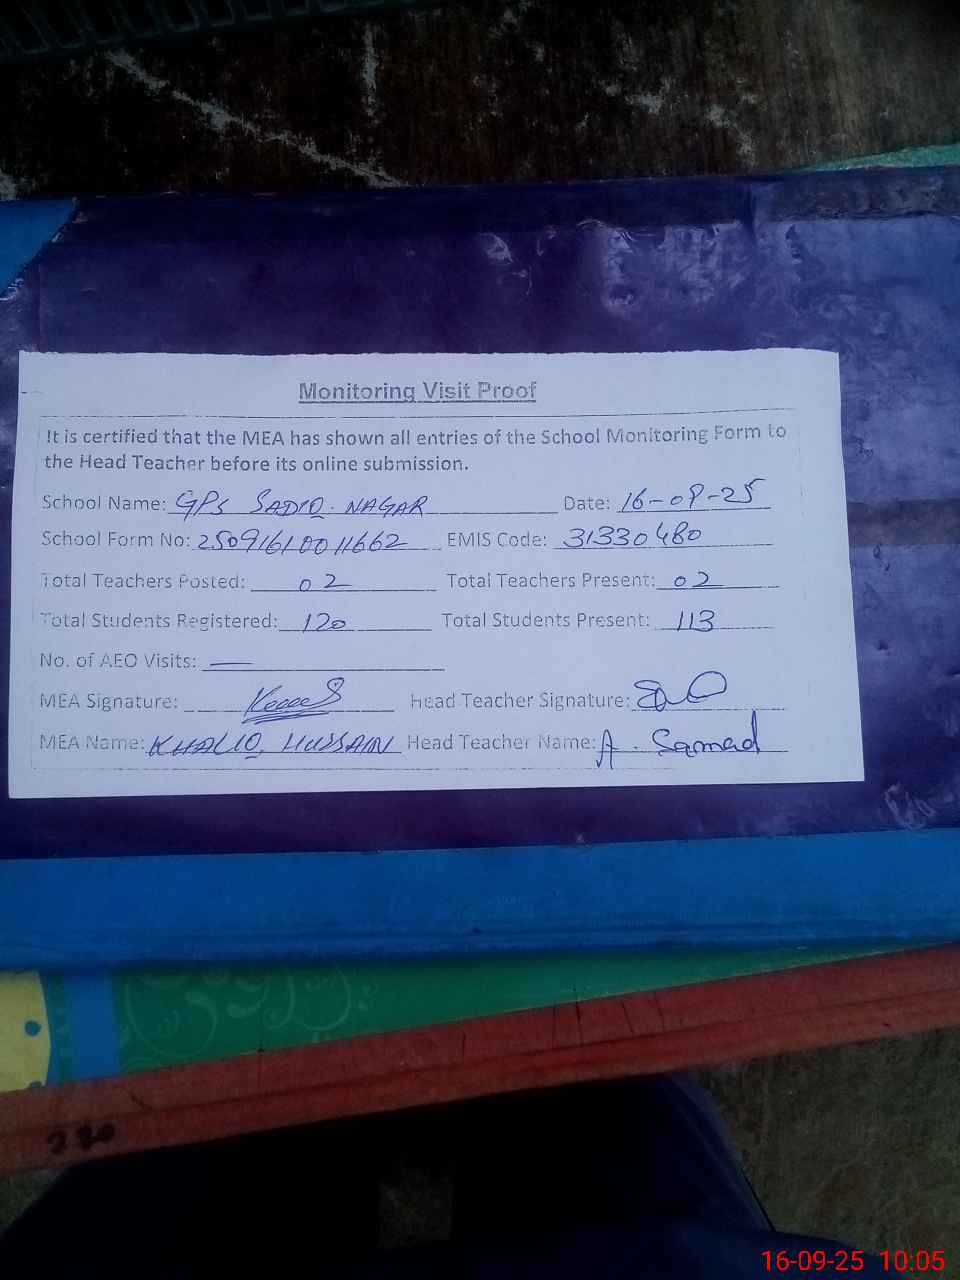 Monitoring Visit Proof
It is certified that the MEA has shown all entries of the School Monitoring Form to
the Head Teacher before its online submission.
School Name: GPS SADIQ. NAGAR Date: 16-09-25
School Form No: 2509161001662 EMIS Code: 31330480
Total Teachers Posted: 02 Total Teachers Present: 02
Total Students Registered: 120 Total Students Present: 113
No. of AEO Visits: —
MEA Signature: Head Teacher Signature:
MEA Name: KHALIQ, HUSSAIN Head Teacher Name: A. Samad
16-09-25 10:05